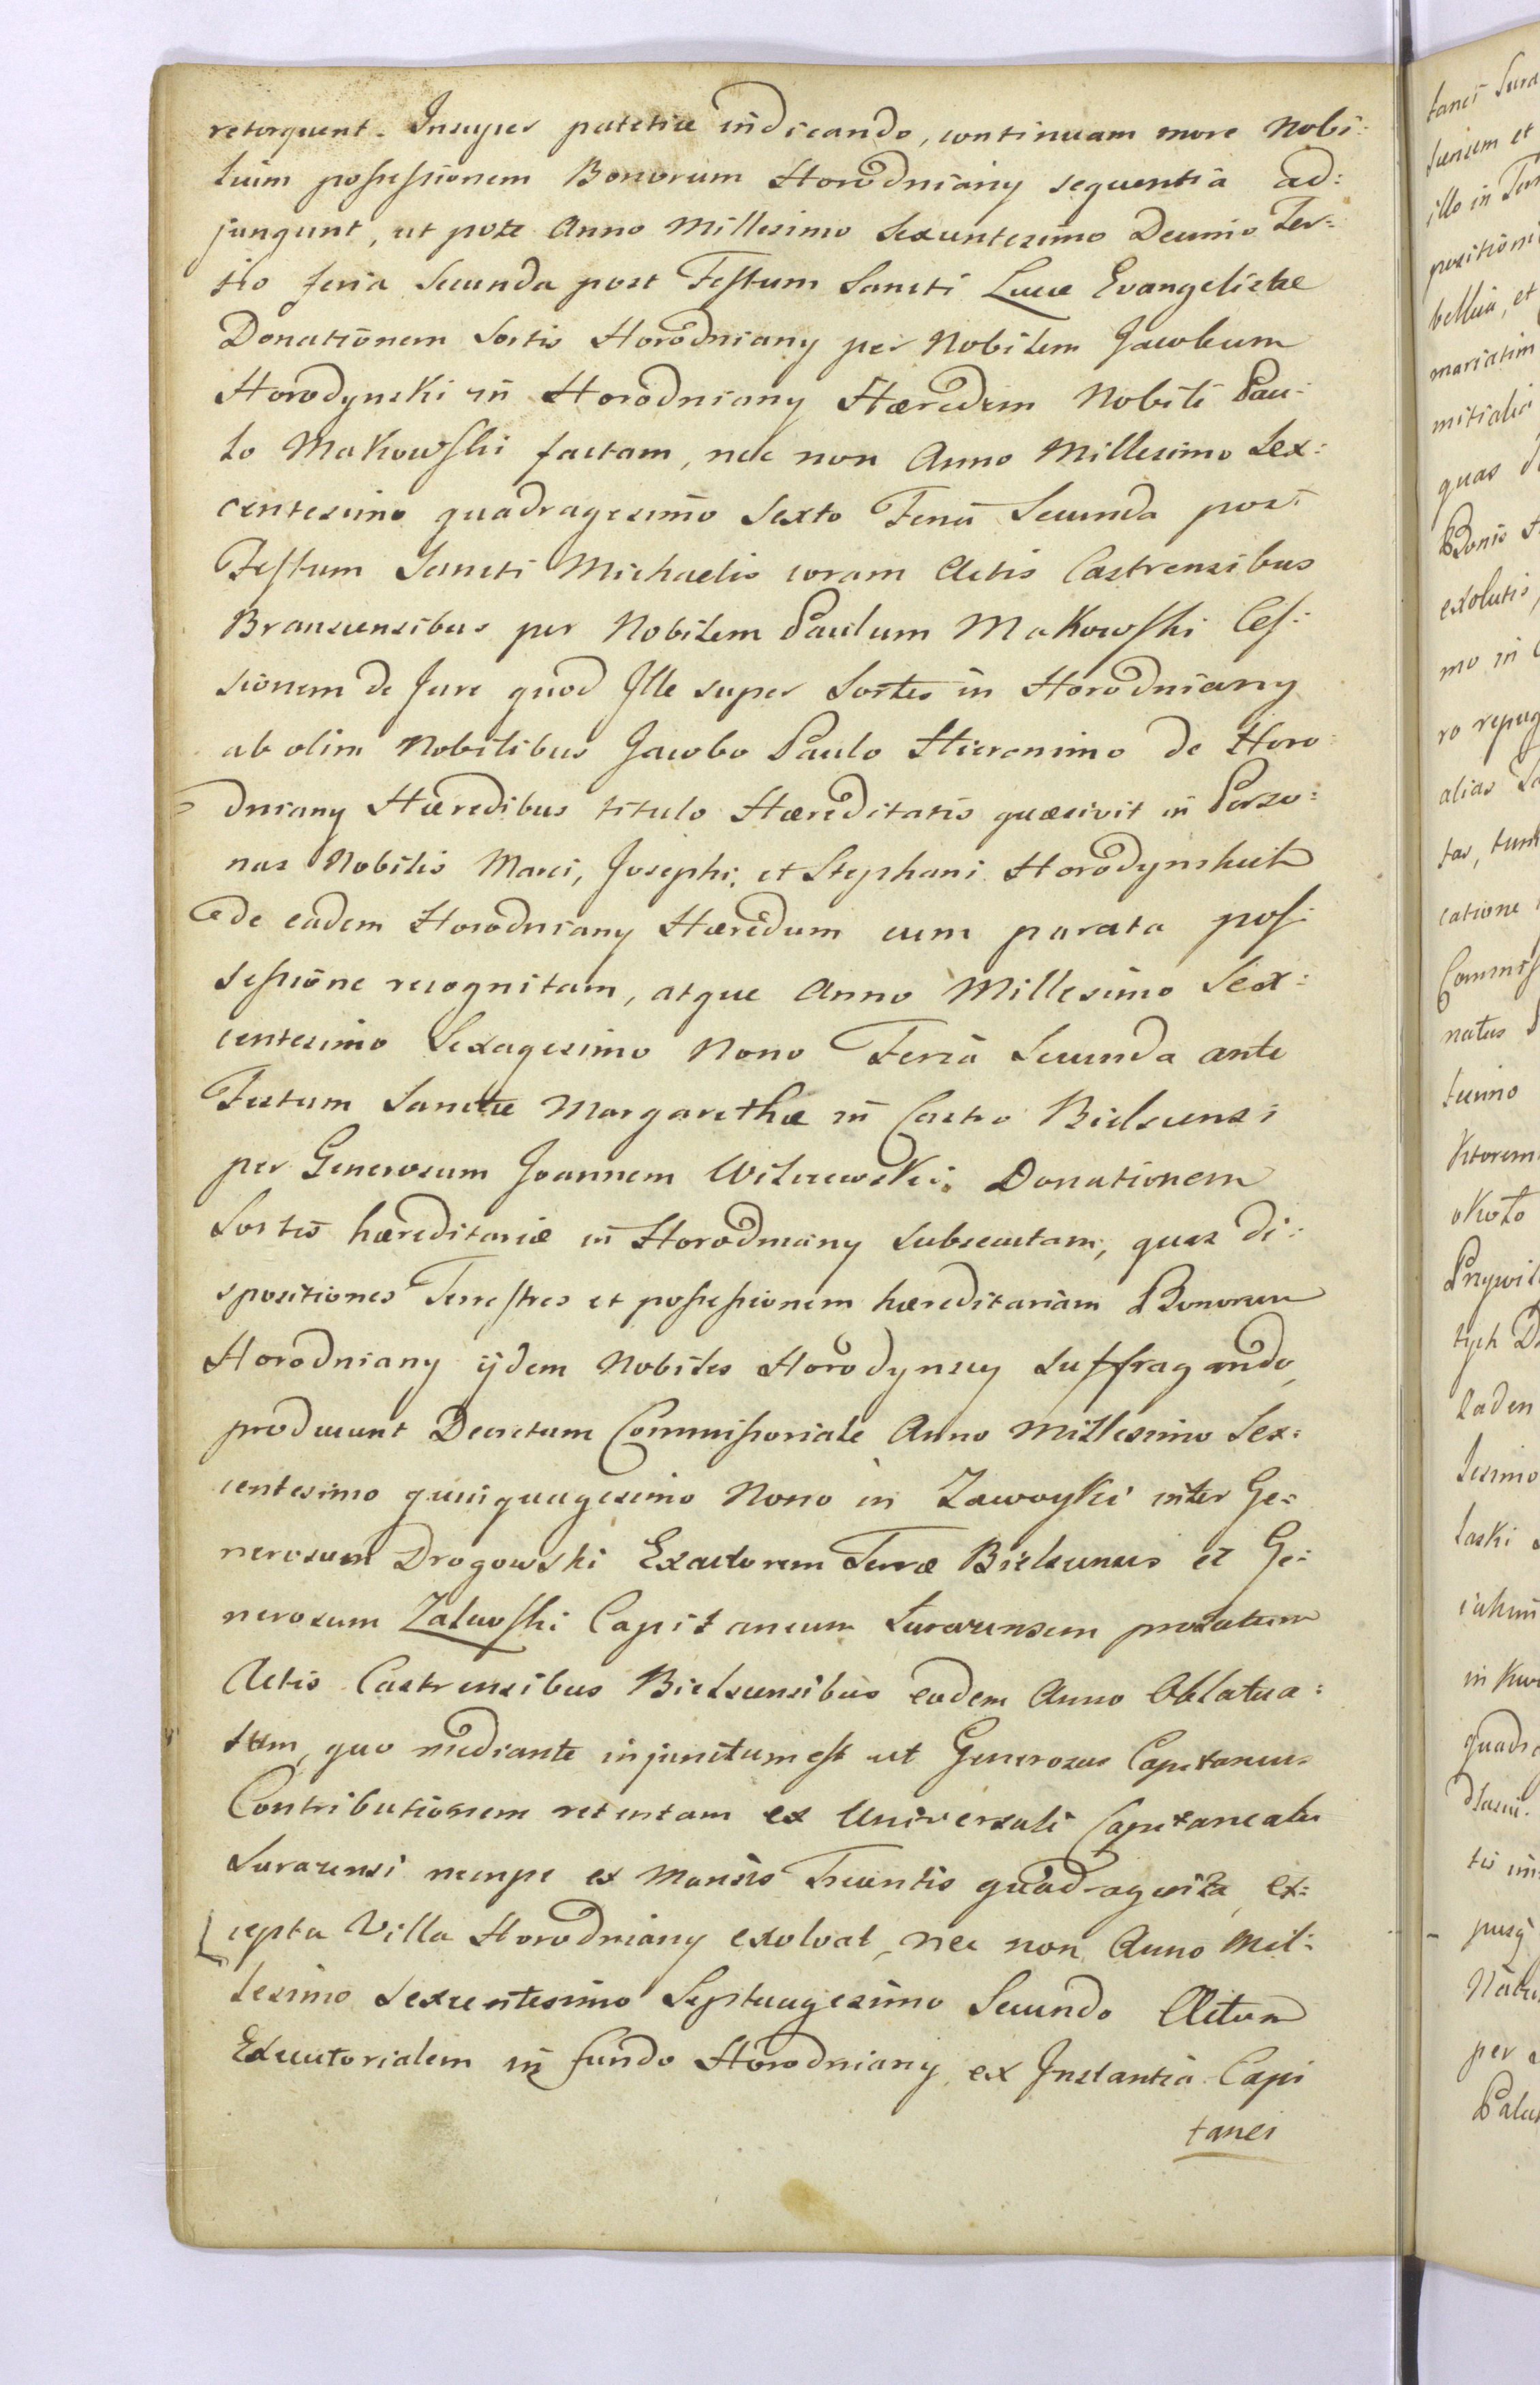 retorquent. Insuper patetice indicando, continuam more Nobi:
lium possessionem Bonorum Horodniany sequentia ad:
jungunt, ut pote Anno Millesimo Sexcentesimo Decimo Ter:
tio feria Secunda post Festum Sancti Lucæ Evangelistæ
Donationem Sortis Horodniany per Nobilem Jacobum
Horodynski in Horodniany Hæredem Nobili Pau:
lo Makowski factam, nec non Anno Millesimo Sex:
centesimo quadragesimo Sexto Feria Secunda post
Festum Sancti Michaelis coram Actis Castrensibus
Branscensibus per Nobilem Paulum Makowski Ces:
sionem de Jure quod Ille super Sortes in Horodniany
ab olim Nobilibus Jacobo Paulo Hieronimo de Horo:
dniany Hæredibus titulo Hæreditatis quæsivit in Perso:
nas Nobilis Marci, Josephi, et Stephani Horodynskich
de eadem Horodniany Hæredum cum parata pos:
sessione recognitam, atque Anno Millesimo Sex:
centesimo Sexagesimo Nono Feria Secunda ante
Festum Sanctæ Margarethæ in Castro Bielscensi
per Generosum Joannem Wilczewski Donationem
Sortis hæreditariæ in Horodniany subsecutam, quas di:
spositiones Terrestres et possessionem hæreditariam Bonorum
Horodniany ijdem Nobiles Horodynscy suffragando,
producunt Decretum Commissoriale Anno Millesimo Sex:
centesimo quinquagesimo Nono in Zawoyki inter Ge:
nerosum Drogowski Exactorem Terræ Bielscensis et Ge:
nerosum Zalewski Capitaneum Surazensem prolatum
Actis Castrensibus Bielscensibus eodem Anno Oblatua:
tum, quo mediante injunctum est ut Generosus Capitaneus
Contributionem retentam ex Universali Capitaneatu
Surazensi nempe ex Mansis Trecentis quadraginta, ex:
cepta Villa Horodniany exolvat, nec non Anno Mil:
lesimo Sexcentesimo Septuagesimo Secundo Actum
Executorialem in fundo Horodniany ex Instantia Capi
tanei